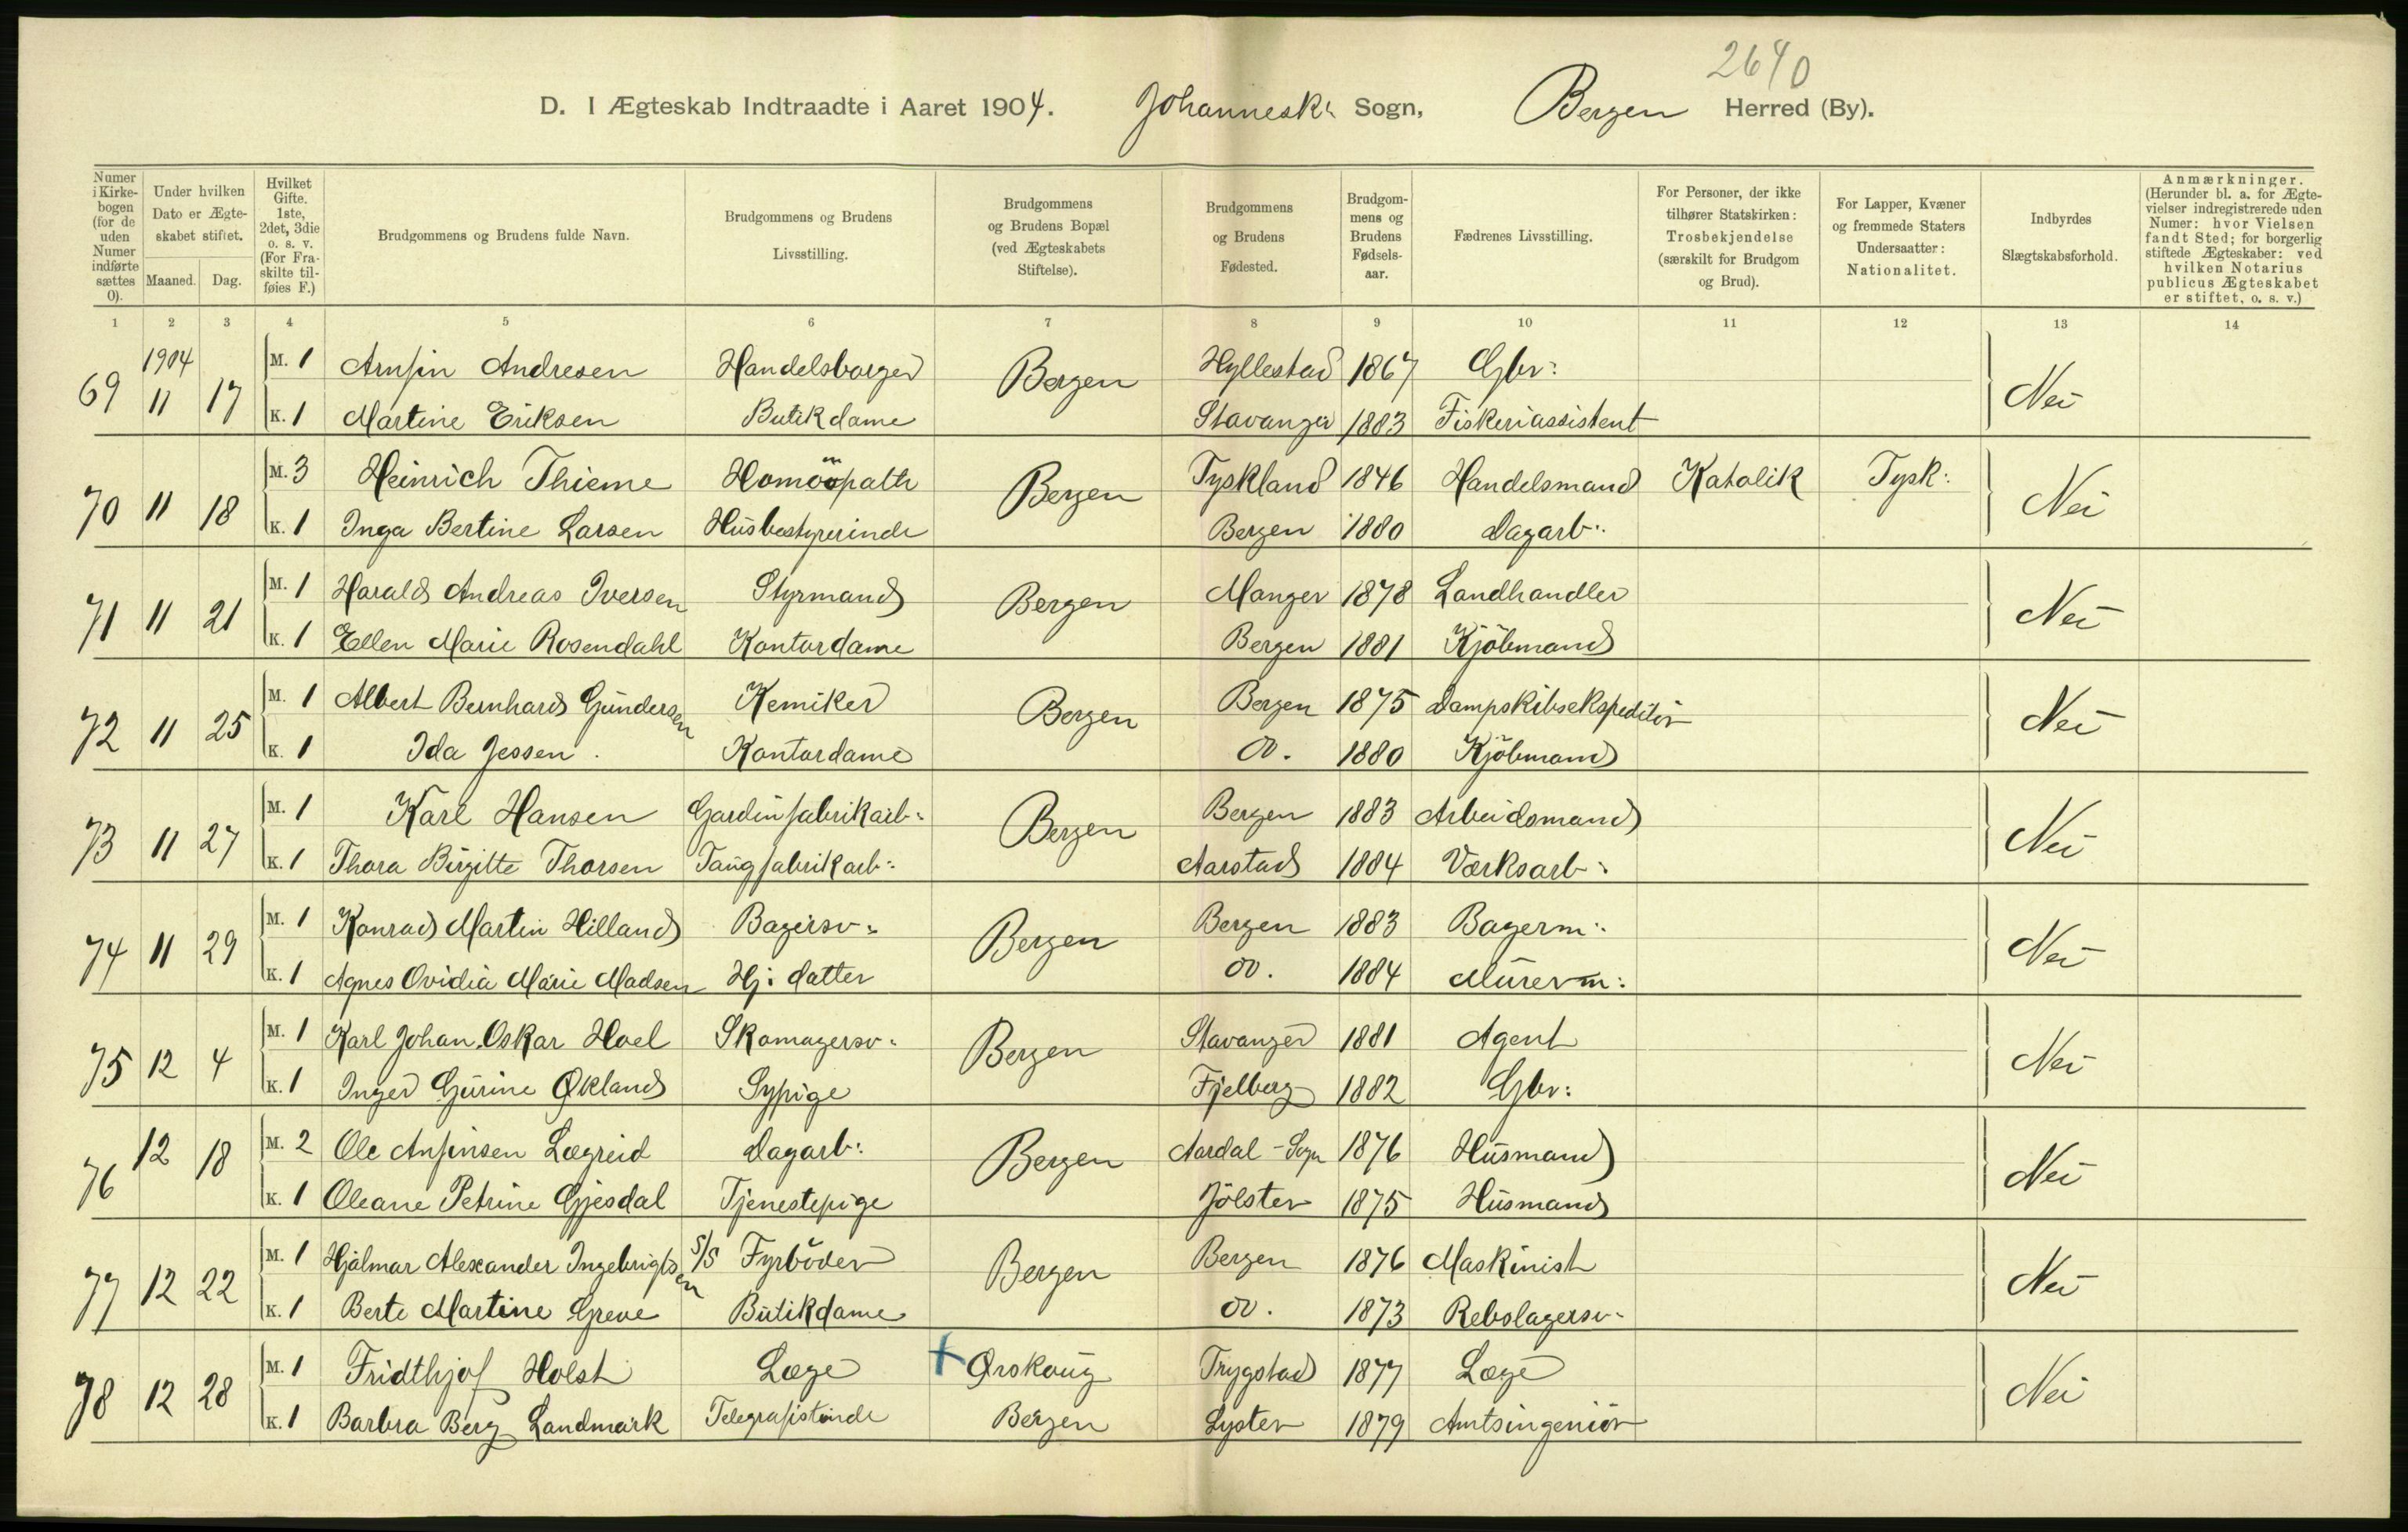 2640
D. I Ægteskab Indtraadte i Aaret 1904. Johannesk: Sogn, Bergen Herred (By).
Numer i Kirkebogen (for de uden Numer indførte sættes 0). Under hvilken Dato er Ægteskabet stiftet. Maaned. Dag. Hvilket Gifte. 1ste, 2det, 3die o. s. v. (For Fraskilte tilføies F.) Brudgommens og Brudens fulde Navn. Brudgommens og Brudens Livsstilling. Brudgommens og Brudens Bopæl (ved Ægteskabets Stiftelse). Brudgommens og Brudens Fødested. Brudgommens og Brudens Fødselsaar. Fædrenes Livsstilling. For Personer, der ikke tilhører Statskirken: Trosbekjendelse (særskilt for Brudgom og Brud). For Lapper, Kvæner og fremmede Staters Undersaatter: Nationalitet. Indbyrdes Slægtskabsforhold. Anmærkninger. (Herunder bl. a. for Ægtevielser indregistrerede uden Numer: hvor Vielsen fandt Sted; for borgerlig stiftede Ægteskaber: ved hvilken Notarius publicus Ægteskabet er stiftet, o. s. v.)
1 2 3 4 5 6 7 8 9 10 11 12 13 14
1904
69 11 17 M. 1 Arnfin Andresen Handelsborger Bergen Hyllestad 1867 Gbr: Nei
K. 1 Martine Eriksen Butikdame Stavanger 1883 Fiskeriassistent
70 11 18 M. 3 Heinrich Thieme Homöopath Bergen Tyskland 1846 Handelsmand Katolik Tysk: Nei
K. 1 Inga Bertine Larsen Husbestyrerinde Bergen 1880 Dagarb:
71 11 21 M. 1 Harald Andreas Iversen Styrmand Bergen Manger 1878 Landhandler Nei
K. 1 Ellen Marie Rosendahl Kontordame Bergen 1881 Kjöbmand
72 11 25 M. 1 Albert Bernhard Gundersen Kemiker Bergen Bergen 1875 Dampskibsekspeditör Nei
K. 1 Ida Jessen. Kontordame do. 1880 Kjöbmand
73 11 27 M. 1 Karl Hansen Gardinfabrikarb: Bergen Bergen 1883 Arbeidsmand Nei
K. 1 Thora Birgitte Thorsen Taugfabrikarb: Aarstad 1884 Værksarb:
74 11 29 M. 1 Konrad Martin Hilland Bagersv: Bergen Bergen 1883 Bagerm: Nei
K. 1 Agnes Ovidia Marie Madsen Hj: datter do. 1884 Murerm:
75 12 4 M. 1 Karl Johan Oskar Hoel Skomagersv: Bergen Stavanger 1881 Agent Nei
K. 1 Inger Gurine Økland Sypige Fjelberg 1882 Gbr:
76 12 18 M. 2 Ole Anfinsen Lægreid Dagarb: Bergen Aardal - Sogn 1876 Husmand Nei
K. 1 Oleane Petrine Gjesdal Tjenestepige Jölster 1875 Husmand
77 12 22 M. 1 Hjalmar Alexander Ingebrigtsen S/S Fyrböder Bergen Bergen 1876 Maskinist Nei
K. 1 Berte Martine Greve Butikdame do. 1873 Rebslagersv:
78 12 28 M. 1 Fridthjof Holst Læge + Ørskoug Trygstad 1877 Læge Nei
K. 1 Barbra Berg Landmark Telegrafistinde Bergen Lyster 1879 Amtsingeniör